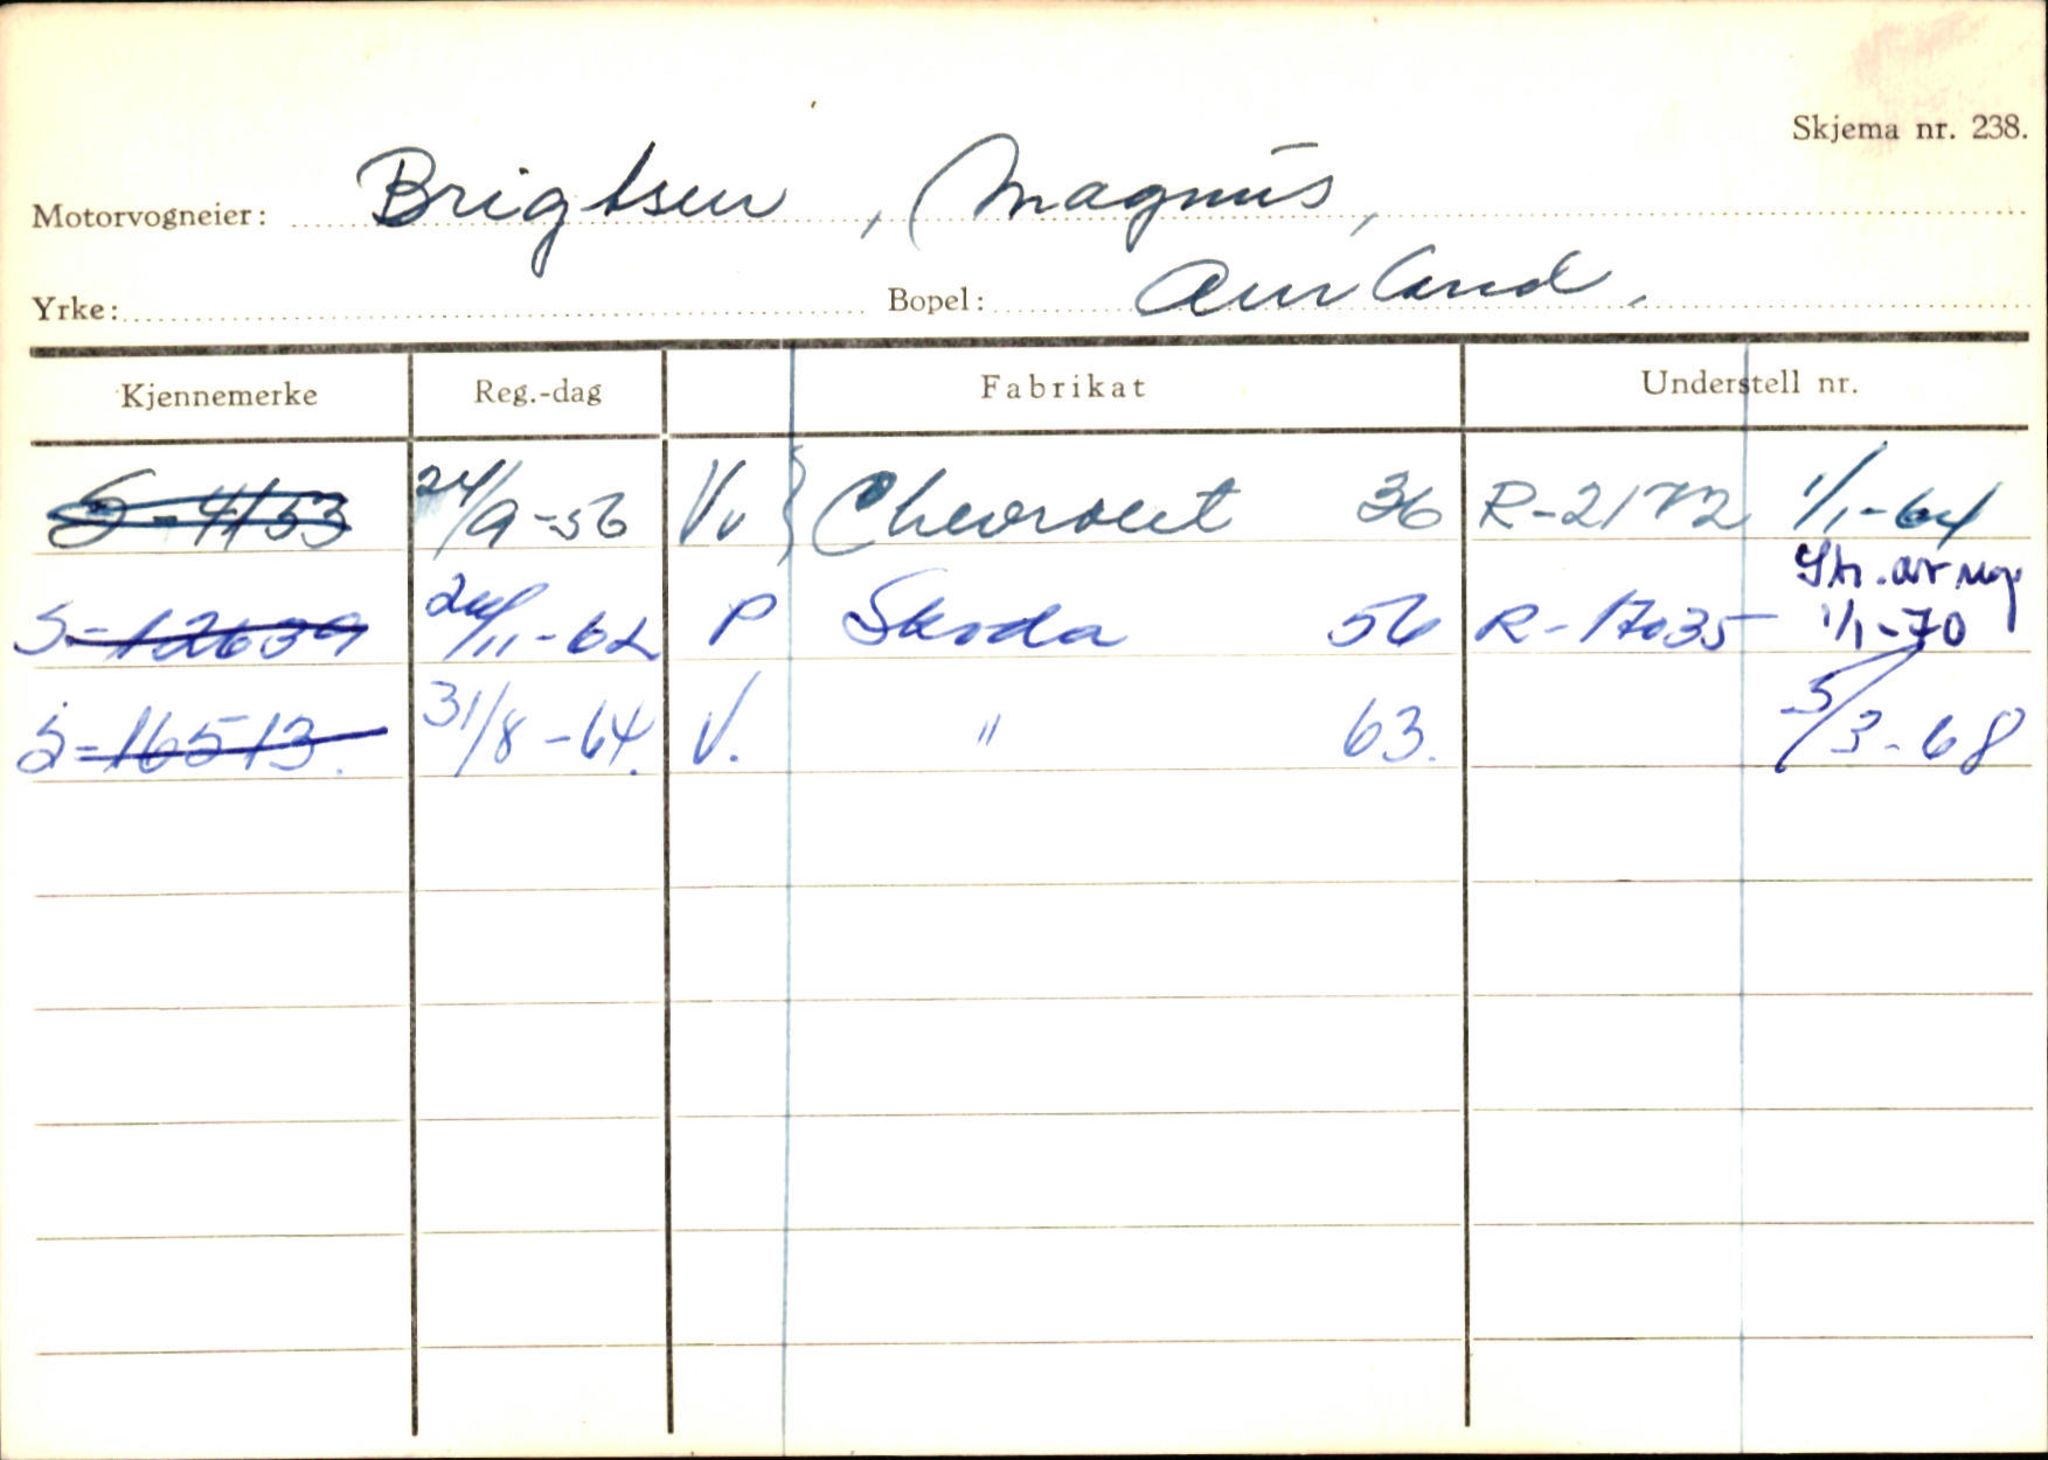 Skjema nr. 238.
Motorvogneier: Brigtsen, Magnus,
Yrke: Bopel: Aurland.
Kjennemerke Reg.-dag Fabrikat Understell nr.
S-4153 24/9-56 Vv } Chevrolet 36 R-2172 1/1-64
Str. av reg
S-12639 24/11-62 P Skoda 56 R-17035 1/1-70
S-16513. 31/8-64. V. " 63. 5/3-68